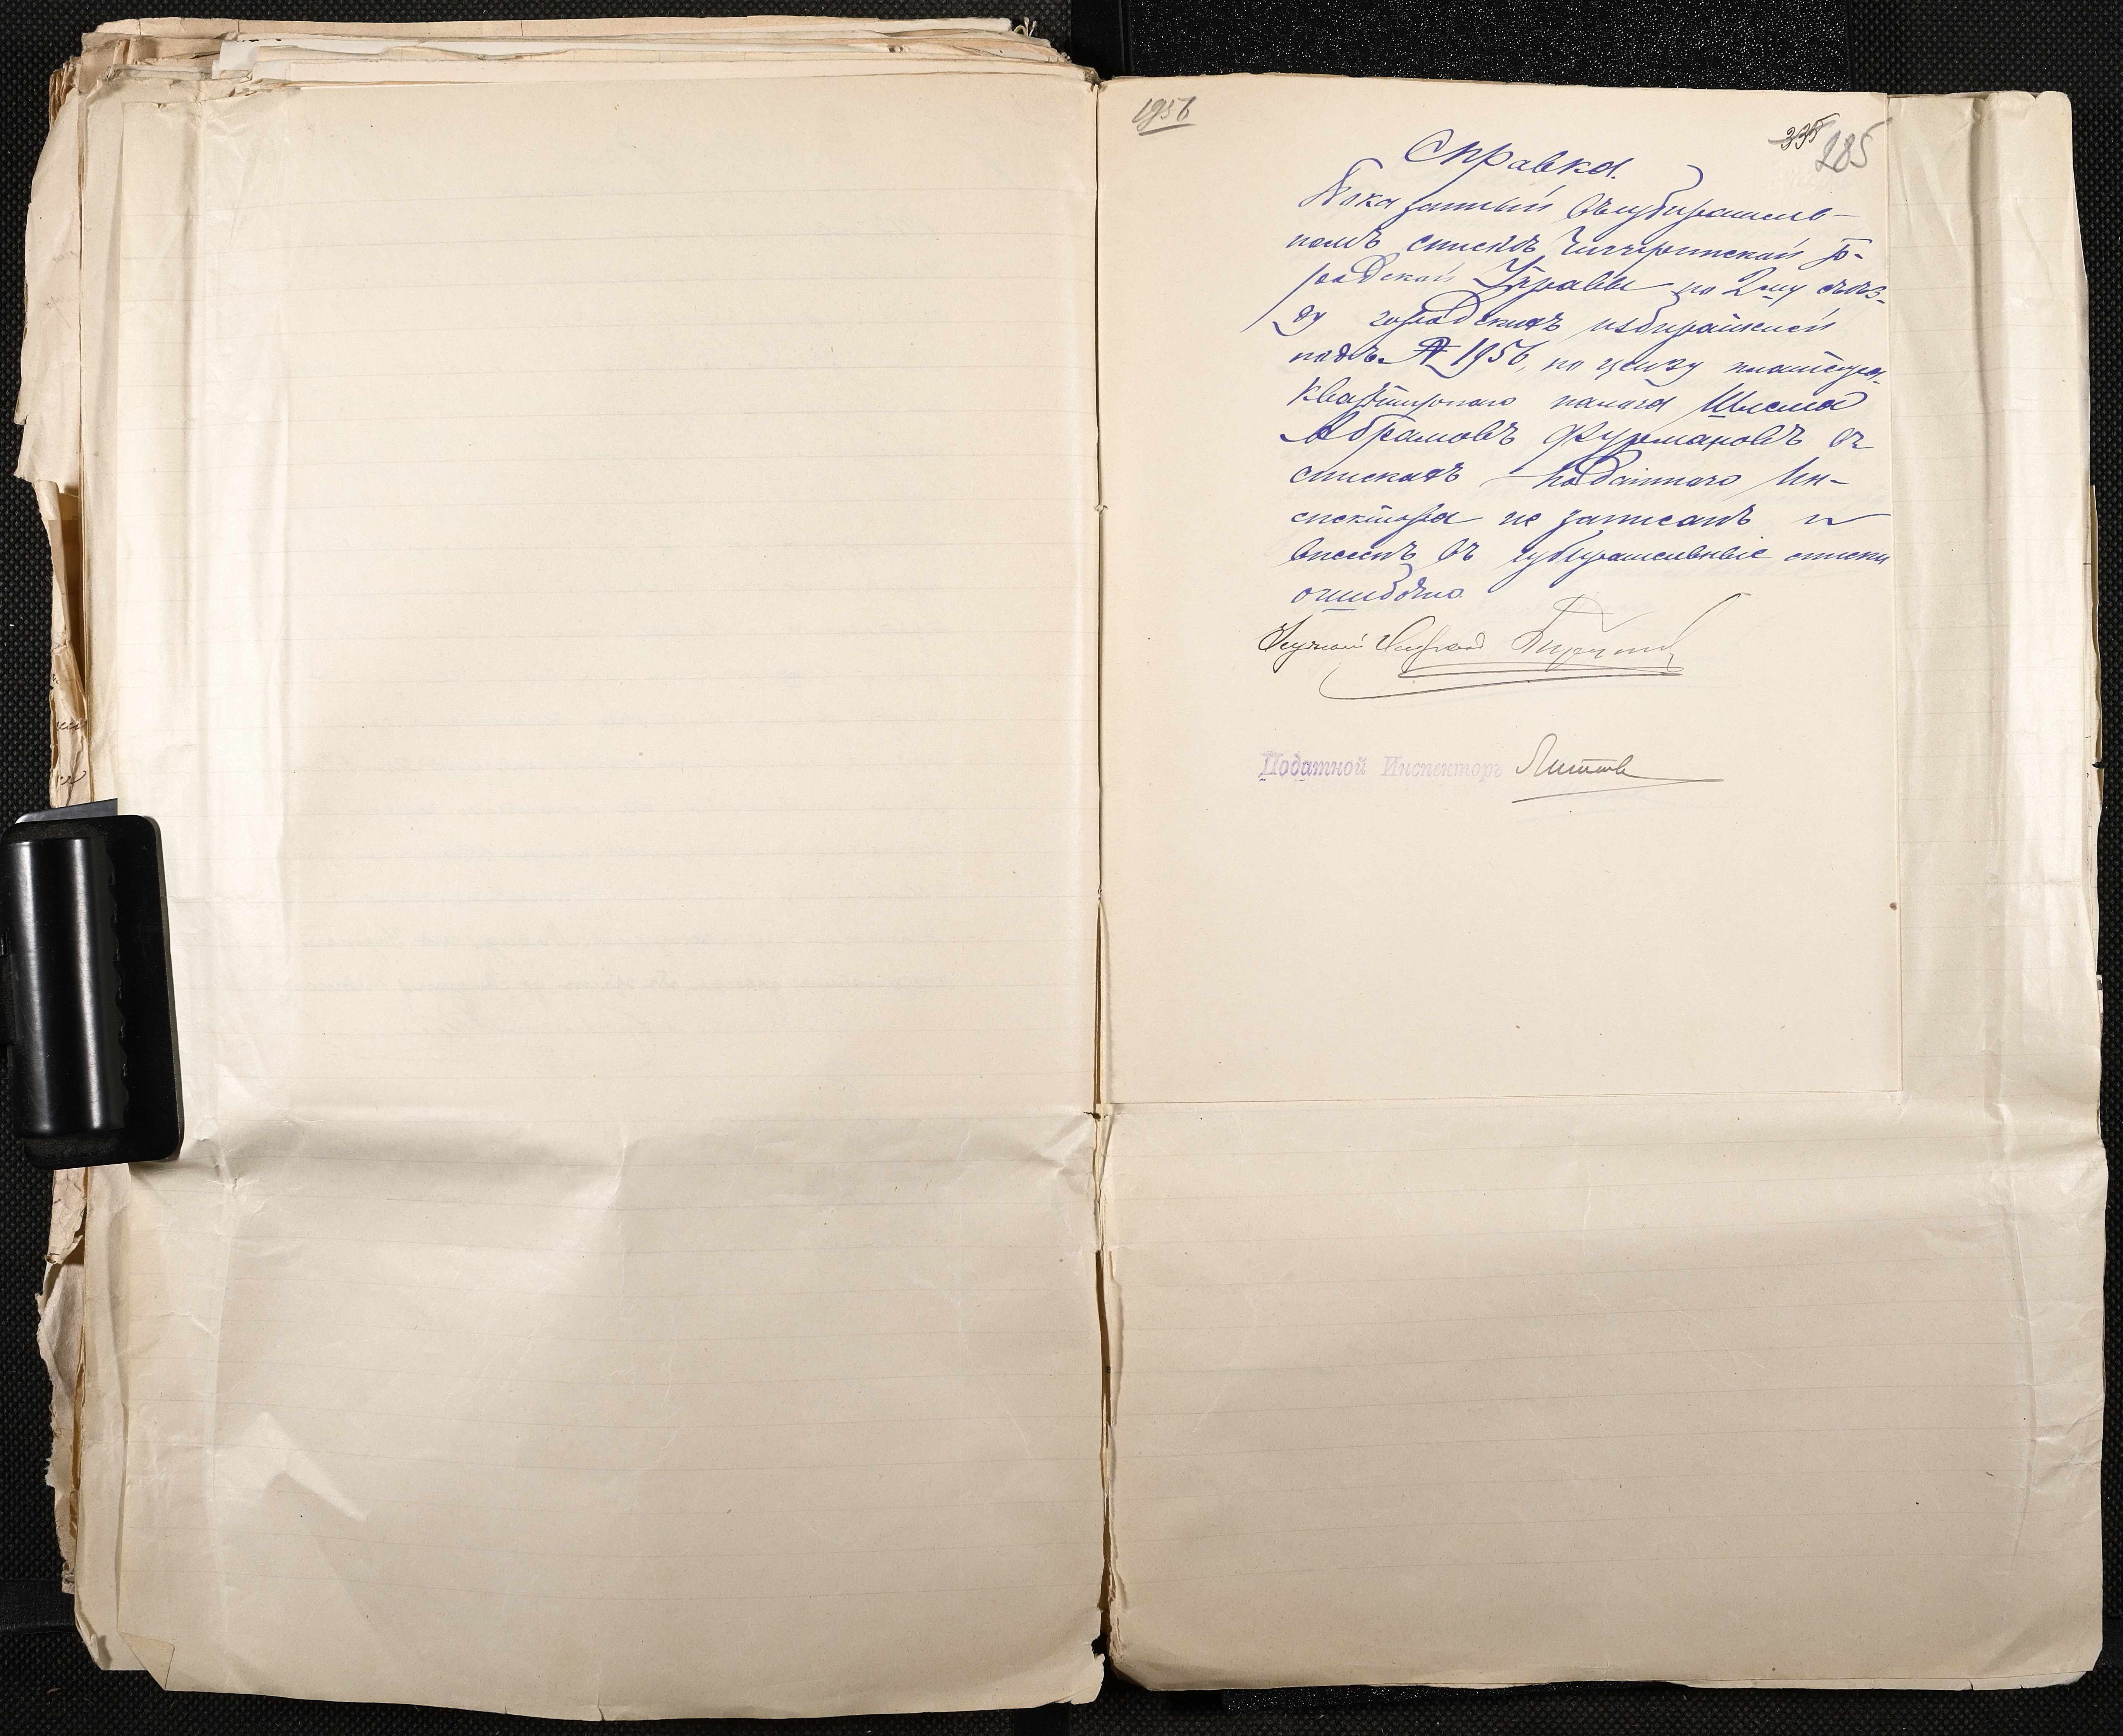 1956
335 285
Справка.
Показанный въ избиратель-
номъ спискѣ Чигиринской Го-
родской Управы по 2му съѣз-
ду городскихъ избирателей
подъ № 1956, по цензу платежа
квартирнаго налога Шлема
Абрамовъ Фурмановъ въ
спискахъ Податного Ин-
спектора не записанъ и
внесенъ въ избирательные списки
ошибочно.
Податной Инспекторъ